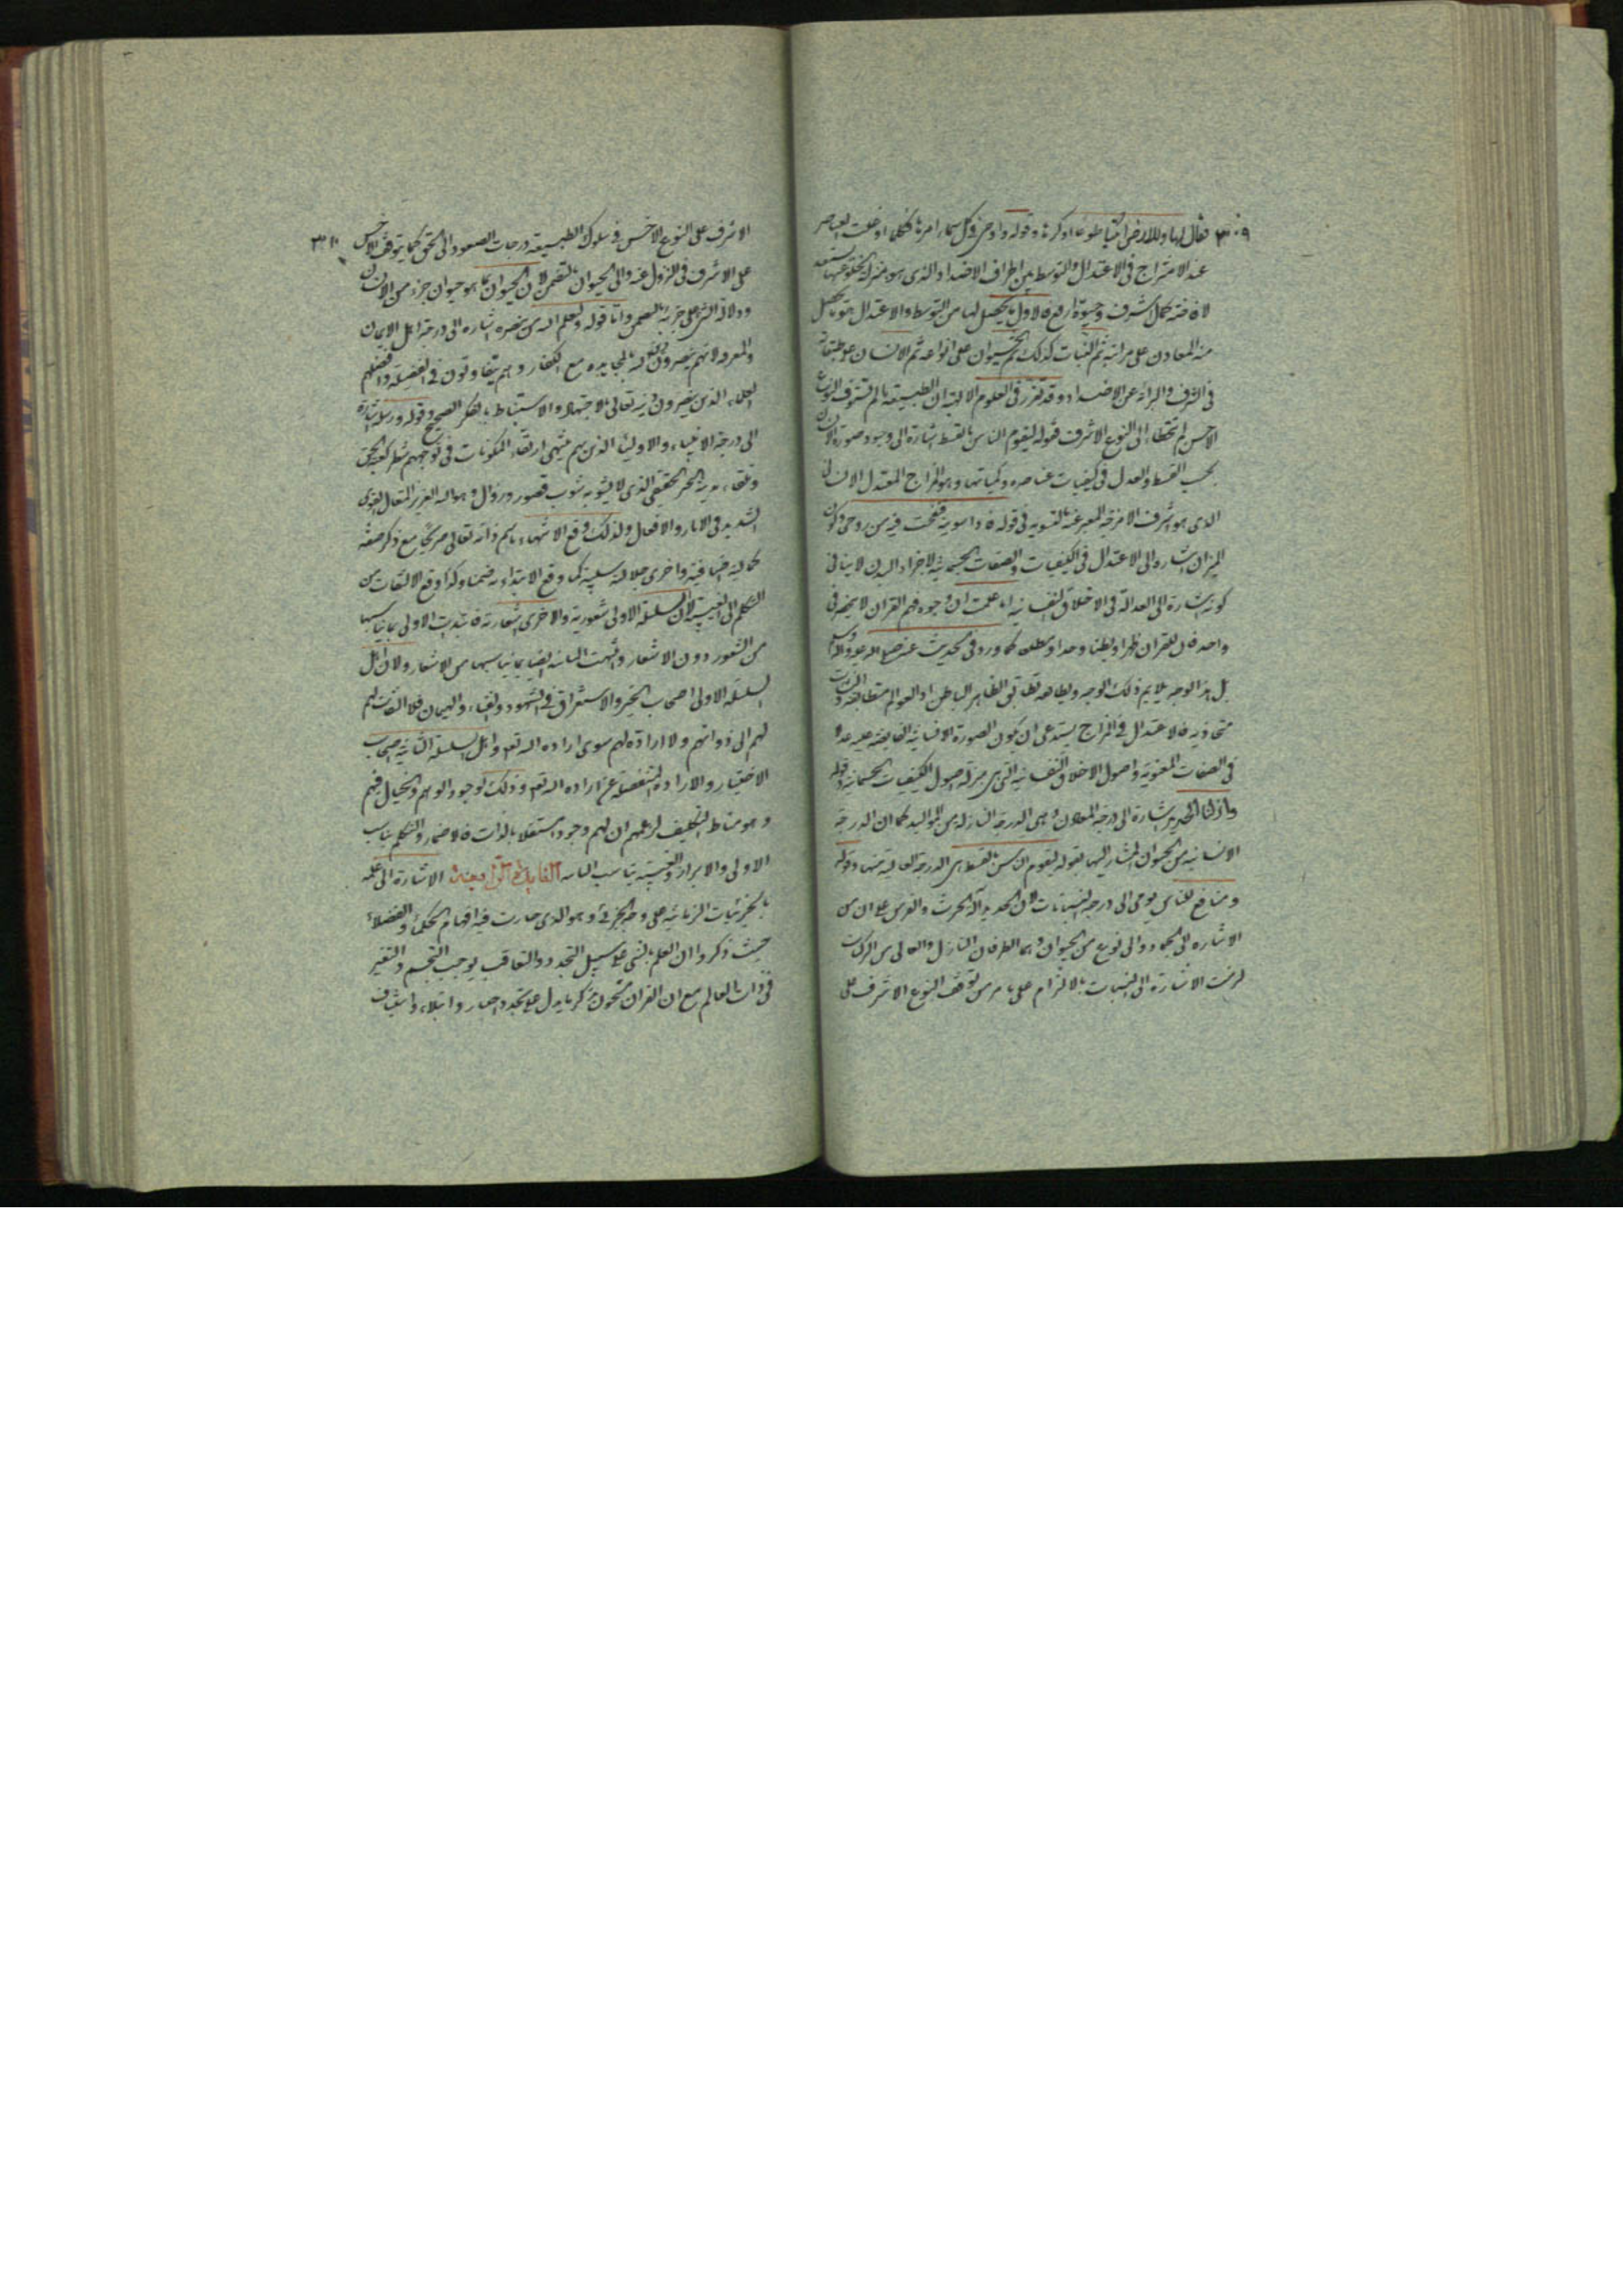 ٣٠٩ فقال لها وللارض ائتيا طوعا او كرها وقوله واوحى فى كل سماء امرها فكلما اوغلت العناصر
عند الامتزاج فى الاعتدال والتوسط بين اطراف الاضداد الذى هو بمنزلة الخلو عنها تستعد
لافاضة كمال اشرف وحيوة ارفع فاول ما يحصل لها من التوسط والاعتدال هو ما يحصل
منه المعادن على مراتبه ثم النبات كذلك ثم الحيوان على انواعه ثم الانسان على طبقاته
فى الشرف والبراءة عن الاضداد وقد تقرر فى العلوم الالهية ان الطبيعة ما لم تستوف النوع
الاخس لم تتخطاه الى النوع الاشرف فقوله ليقوم الناس بالقسط اشارة الى وجود صورة الانسان
بحسب القسط والعدل فى كيفيات عناصره وكمياتها وهو المزاج المعتدل الانسانى
الذى هو اشرف الامزجة المعبر عنه بالتسوية فى قوله فاذا سويته ونفخت فيه من روحى وكون
الميزان اشارة الى الاعتدال فى الكيفيات والصفات الجسمية لاجزاء البدن لا ينافى
كونه اشارة الى العدالة فى الاخلاق النفسانية لما علمت ان وجوه فهم القران لا ينحصر فى
واحد فان للقران ظهرا وبطنا وحدا ومطلعا كما ورد فى الحديث عنه صلى الله عليه واله وسلم
بل هذا الوجه يلايم ذلك الوجه ويطابقه تطابق الظاهر الباطن اذ العوالم متطابقة والنشآت
متحاذية فالاعتدال فى المزاج يستدعى ان تكون الصورة الانسانية الفايضة عليه عدلا
فى الصفات المعنوية واصول الاخلاق النفسانية التى هى بمنزلة اصول الكيفيات الجسمانية وقوله
وانزلنا الحديد اشارة الى درجة المعادن وهى الدرجة النازلة من المواليد كما ان الدرجة
الانسانية من الحيوان المشار اليها بقوله ليقوم الناس بالقسط هى الدرجة العالية منها وقوله
ومنافع للناس يومى الى درجة النباتات لان الحديد آلة الحرث والغرس على ان من
الاشارة الى الجماد والى نوع من الحيوان وهما الطرفان النازل والعالى من المركبات
لزمت الاشارة الى النبات بالالتزام على ما مر من توقف النوع الاشرف على
٣١٠ الاشرف على النوع الاخس فى سلوك الطبيعة درجات الصعود الى الحق كما يتوقف الاخس
على الاشرف فى النزول عنه والى الحيوان بالتضمن لان الحيوان بما هو حيوان جزء من الانسان
ودلالة الشى على جزئه بالتضمن واما قوله وليعلم الله من ينصره اشارة الى درجة اهل الايمان
والمعرفة لانهم ينصرون دين الله بالمجاهدة مع الكفار وهم يتفاوتون فى الفضيلة وافضلهم
العلماء الذين ينصرون دينه تعالى بالاجتهاد والاستنباط بالفكر الصحيح وقوله ورسله اشارة
الى درجة الانبياء والاولياء الذين هم منتهى ارتقاء المكونات فى توجههم شطر كعبة الحق
وتلقاء مدينة الخير الحقيقى الذى لا يشوبه شوب قصور وزوال وهو الله العزيز المتعال القوى
الشديد فى الاثار والافعال ولذلك وقع الانتهاء باسم ذاته تعالى صريحا مع ذكر صفة
كمالية اضافية واخرى جلالية سلبية كما وقع الابتداء به ضمنا وكذا وقع الالتفات من
التكلم الى الغيبة لان السلسلة الاولى شعورية والاخرى اشعارية فابتديت الاولى بما يناسبها
من الشعور دون الاشعار وانتهت الثانية ايضا بما يناسبها من الاشعار ولان اهل
السلسلة الاولى اصحاب الخير والاستغراق فى الشهود والفناء والهيمان فلا التفات لهم
لهم الى ذواتهم ولا ارادة لهم سوى ارادة الله تعالى واهل السلسلة الثانية اصحاب
الاختيار والارادة المنفصلة عن ارادة الله تعالى وذلك لوجود الوهم والخيال فيهم
وهو مناط التكليف لزعمهم ان لهم وجودا مستقلا بالذات فالاضمار والتكلم يناسب
الاولى والابراز والغيبة يناسب الثانية الفايدة الرابعة الاشارة الى علمه
بالجزئيات الزمانية على وجه الجزئى وهو الذى حارت فيه افهام الحكماء والفضلاء
حيث ذكروا ان العلم بالشى على سبيل التجدد والتعاقب يوجب التجسم والتغير
فى ذات العالم مع ان القران مشحون بذكر ما يدل على تجدد اخبار وابتلاء واستيناف